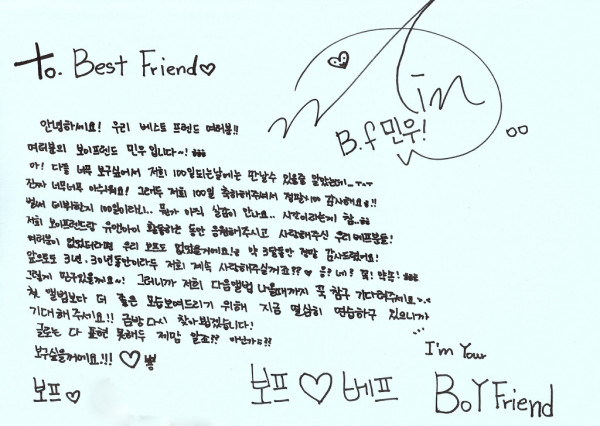 to. Best Friend♡
min
B.f 민우!
안녕하세요! 우리 베스트 프렌드 여러분!!
여러분의 보이프렌드 민우입니다~!
아! 다들 너무 보구싶어서 저희 100일되는날에는 만날수 있을줄 알았는데...ㅜㅜㅜ
진짜 너무너무 아쉬워요! 그래두 저희 100일 축하해주셔서 정말 감사해요!!
벌써 데뷔한지 100일이라니.. 뭔가 아직 실감이 안나요.. 시간이라는게 참..
저희 보이프렌드랑 유앤아이 활동하는 동안 응원해주시고 사랑해주신 우리베프분들!
여러분이 없었더라면 우리 보프도 없었을거에요! 약 3달동안 정말 감사드렸어요!
앞으로도 3년.30년동안이라두 저희 계속 사랑해주실꺼죠?? ♡ 응? 네? 꼭! 약속!
그렇게 믿구있을께요~! 그러니까 저희 다음앨범 나올때까지 꼭 참구 기다려주세요>.<
첫 앨범보다 더 좋은 모습보여드리기 위해 지금 열심히 연습하구 있으니까
기대해주세요!! 금방다시 찾아뵙겠습니다!
글로는 다 표현 못해두 제맘 알죠?? 아닌가요??
보구싶을꺼에요!!! ♡ 뿅
보프♡
보프♡베프
I'm Your
BoYFriend